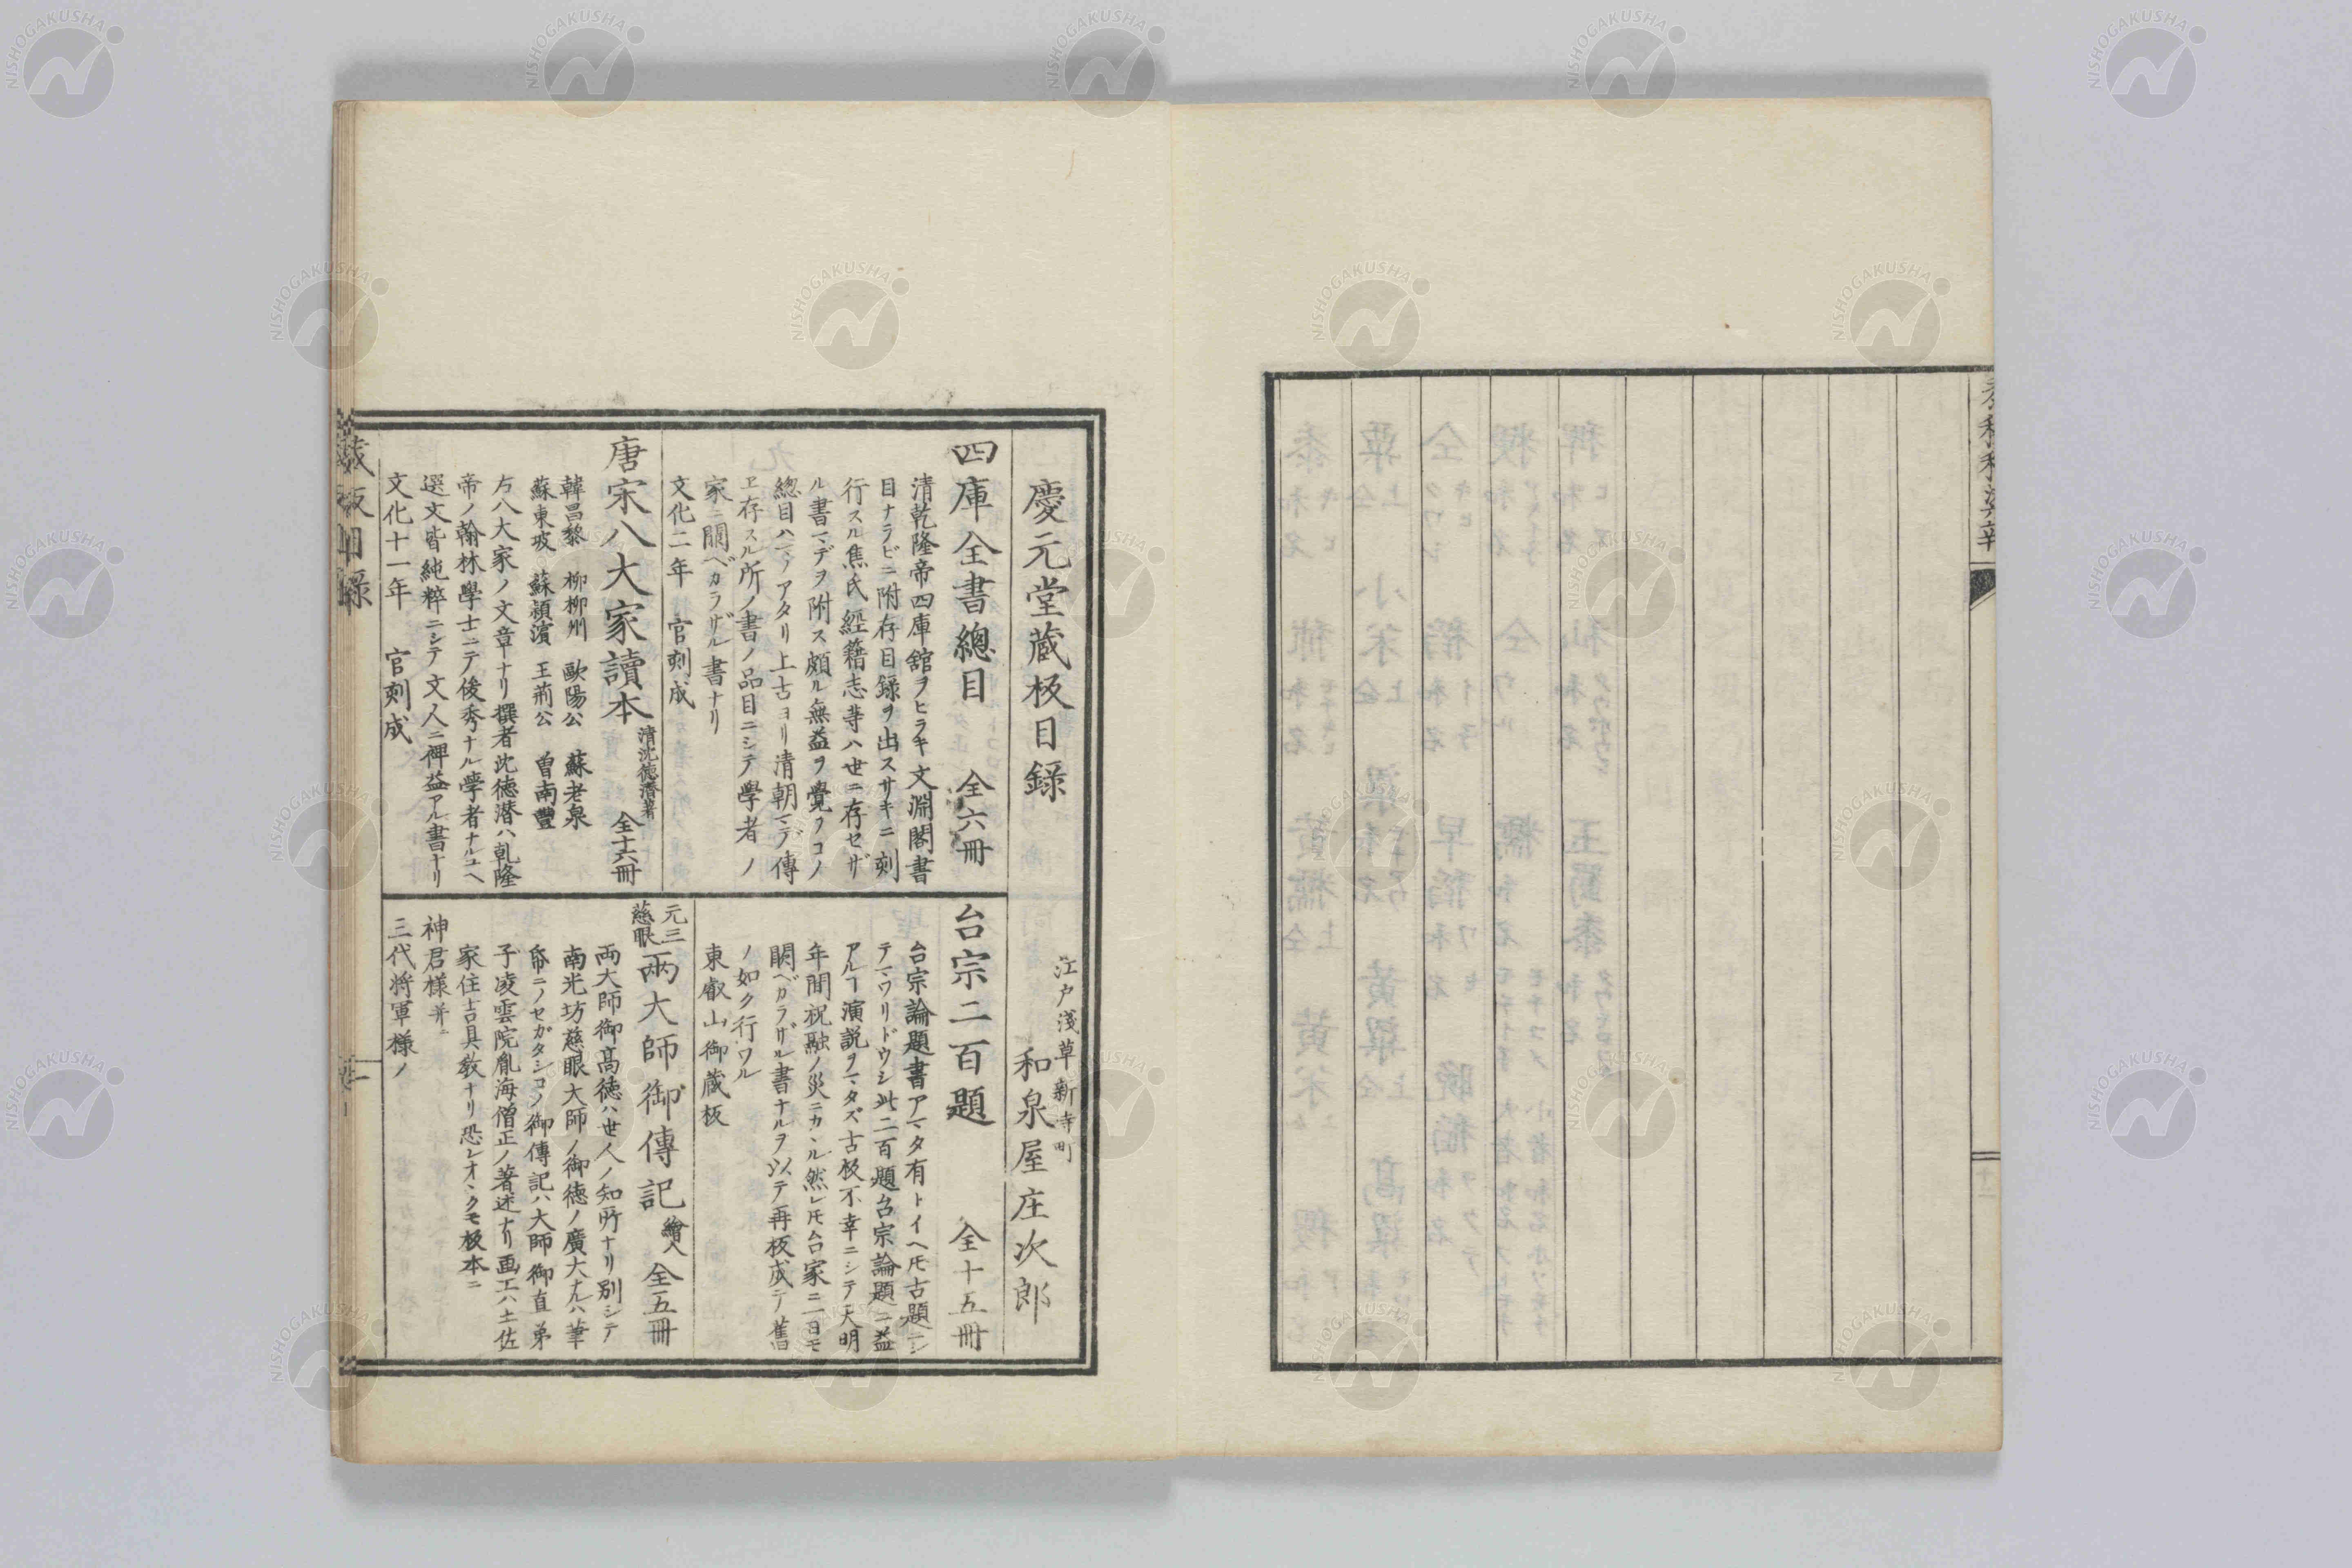 慶元堂蔵板目録
江戸淺草新寺町
和泉屋庄次郎
四庫全書總目 全六冊
清乾隆帝四庫舘ヲヒラキ文淵閣書
目ナラビニ附存目録ヲ出スサキニ刻
行スル焦氏經籍志等ハ世ニ存セザ
ル書マデヲ附ス頗ル無益ヲ覺フコノ
總目ハマノアタリ上古ヨリ清朝マデ傳
ヱ存スル所ノ書ノ品目ニシテ學者ノ
家ニ闕ベカラザル書ナリ
文化二年 官刻成
唐宋八大家讀本 清沈徳潛著 全十六冊
韓昌黎 柳柳州 歐陽公 蘇老泉
蘇東坡 蘇潁濱 王荊公 曽南豐
右八大家ノ文章ナリ撰者沈徳潜ハ乹隆
帝ノ翰林學士ニテ俊秀ナル學者ナルユヘ
選文皆純粹ニシテ文人ニ裨益アル書ナリ
文化十一年 官刻成
台宗二百題 全十五冊
台宗論題書アマタ有トイヘ𪜈古題ニシ
テマワリドウシ此二百題台宗論題ニ益
アルヿ演説ヲマタズ古板不幸ニシテ天明
年間祝融ノ災ニカヽル然レ𪜈台家ニ一日モ
闕ベカラザル書ナルヲ以テ再板成テ舊
ノ如ク行ワル
東叡山御蔵板
元三
慈眼
兩大師御傳記 繪入 全五冊
両大師御髙徳ハ世人ノ知所ナリ別シテ
南光坊慈眼大師ノ御徳ノ廣大ナルハ筆
帋ニノセガタシコノ御傳記ハ大師御直弟
子凌雲院胤海僧正ノ著述ナリ画工ハ土佐
家住吉具敎ナリ恐レオヽクモ板本ニ
神君様并ニ
三代将軍様ノ
蔵板目録
NISHOGAKUSHA